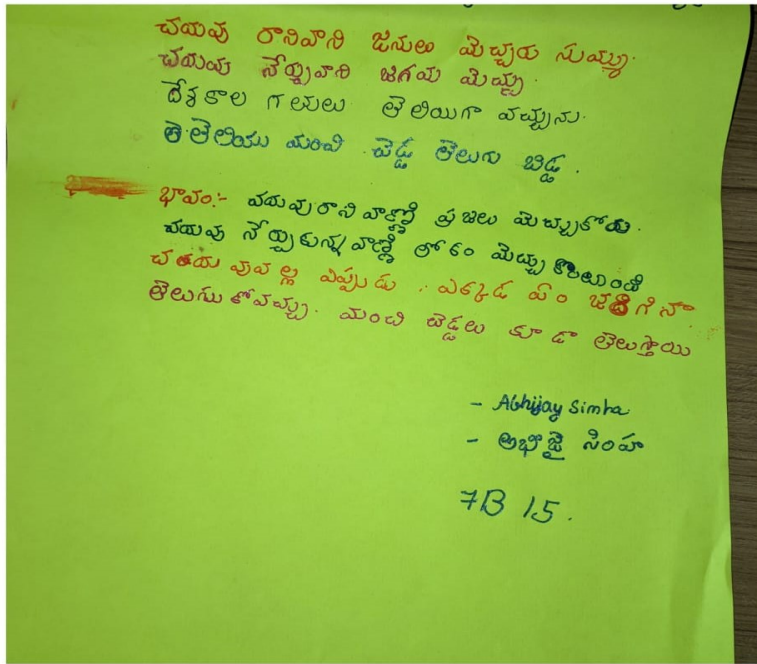 చదువు రానివాని జనులు మెచ్చరు సుమ్ము
చదువు నేర్చువాని జగము మెచ్చు.
దేశకాల గతులు తెలియగా వచ్చును.
తెలియు మంచి చెడ్డ తెలుగు బిడ్డ.
భావం:- చదువురాని వాణ్ణి ప్రజలు మెచ్చుకోరు.
చదువు నేర్చుకున్న వాణ్ణి లోకం మెచ్చు కొంటుంది
చదువువల్ల ఎప్పుడు, ఎక్కడ ఏం జరిగినా
తెలుసుకోవచ్చు. మంచి చెడ్డలు కూడా తెలుస్తాయి
- Abhijay Simha
- అభిజై సింహ
7B 15.